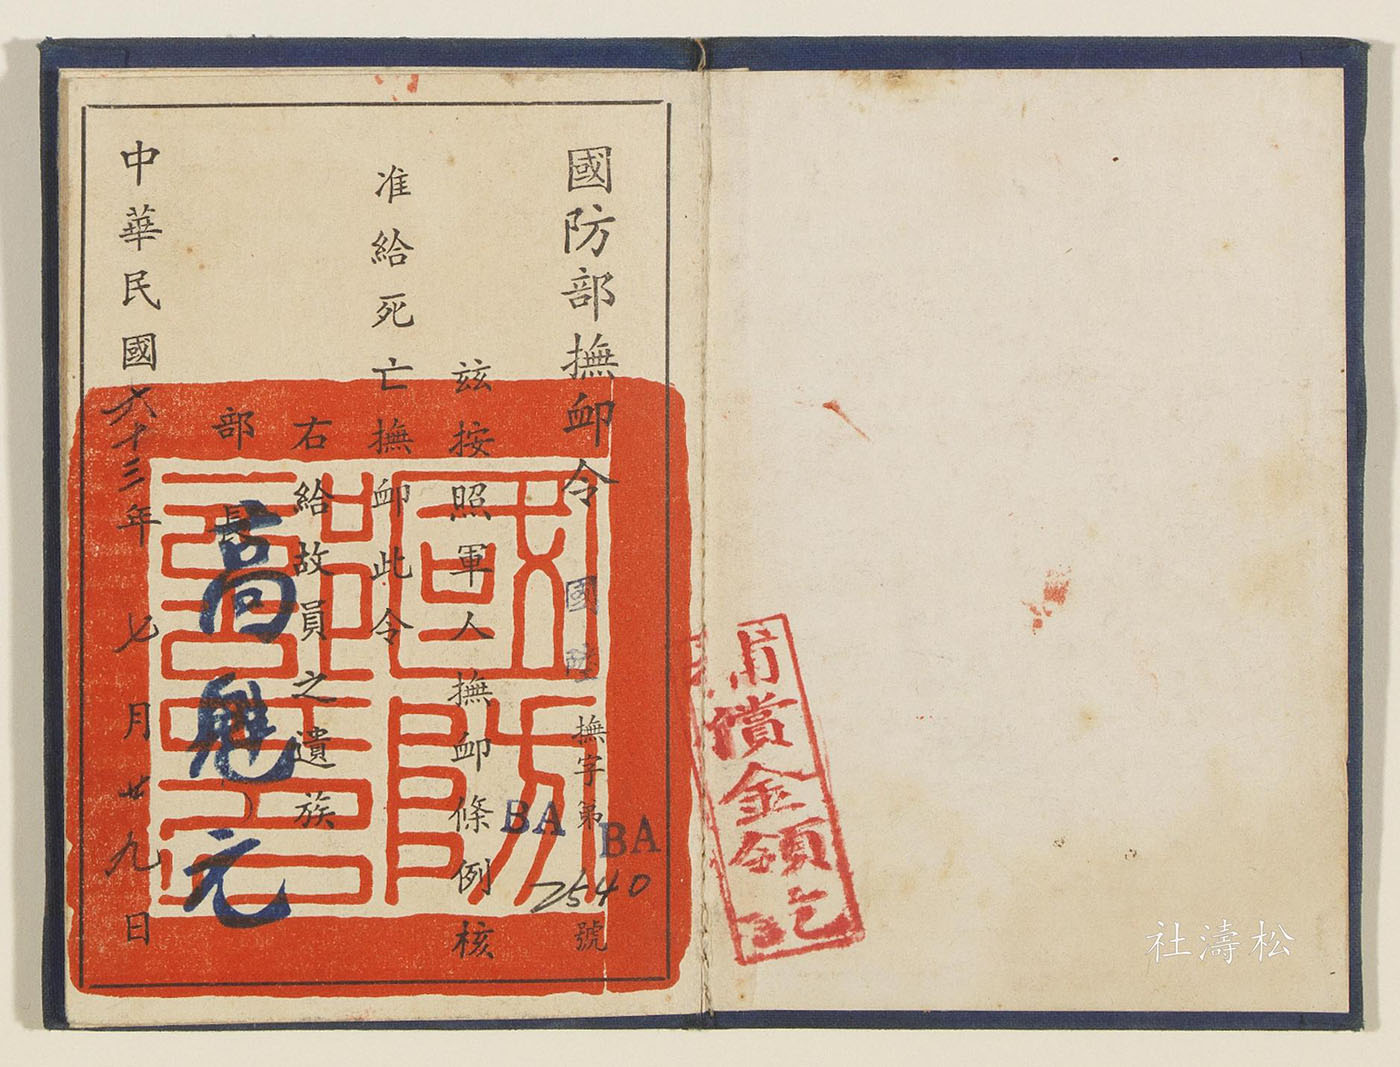 國防部撫卹令
國陸撫字第
BA
BA
7540
號
茲按照軍人撫卹條例核
准給死亡撫卹此令
右給故員之遺族
部長
高魁元
中華民國六十三年七月廿九日
國防部印
補償金領訖
松濤社